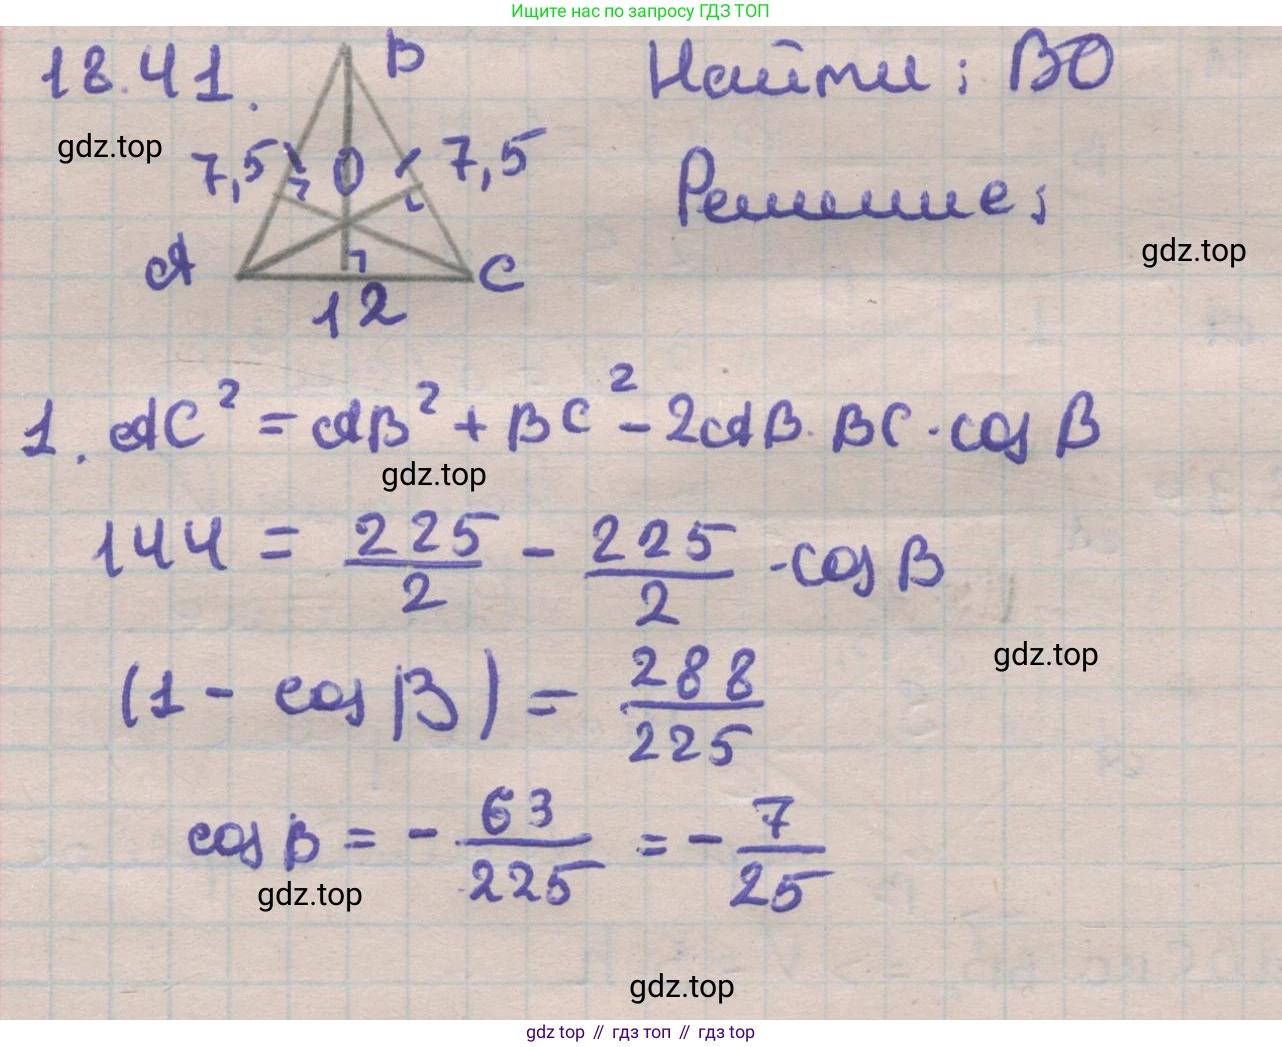 Ищите нас по запросу ГДЗ ТОП
18.41.
B
Найти: BO
gdz.top
7,5
O
7,5
Решение:
gdz.top
A
C
12
1. AC² = AB² + BC² - 2AB · BC · cos B
gdz.top
144 = 225/2 - 225/2 · cos B
gdz.top
(1 - cos B) = 288/225
cos B = - 63/225 = - 7/25
gdz.top
gdz.top
gdz top // гдз топ // гдз top